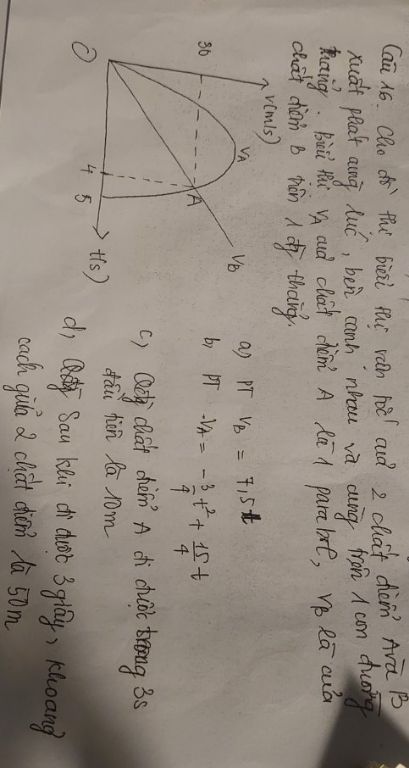 Câu 16. Cho đồ thị biểu thị vận tốc của 2 chất điểm A và B
xuất phát cùng lúc, bên cạnh nhau và cùng trên 1 con đường
thẳng. Biểu thị vA của chất điểm A là 1 parabol, vB là của
chất điểm B trên 1 đg thẳng.
v(m/s)
30
vA
A
vB
O
4
5
t(s)
a) PT vB = 7,5t
b) PT vA = -3/4 t² + 15/4 t
c) Qđg chất điểm A đi được trong 3s
đầu tiên là 10m
d) Sau khi đi được 3 giây, khoảng
cách giữa 2 chất điểm là 50m